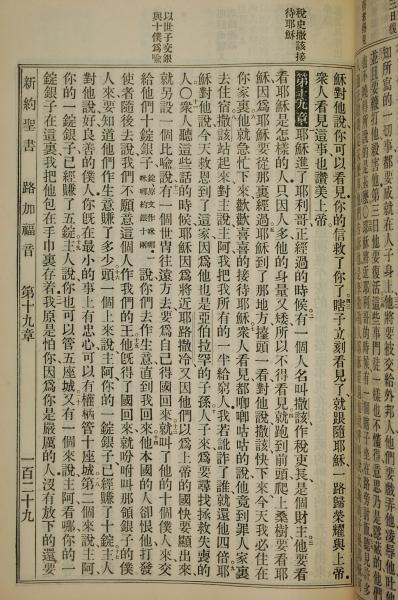 三日復
如所寫的一切事都要成就在人子身上他將要被交給外邦人他們要戲弄他凌辱他吐
並且要鞭打他殺害他第三日他要復活這些事門徒一樣也不懂得
稅史撒該接待耶穌
穌對他說你可以看見你的信救了你了瞎子立刻看見了就跟隨耶穌一路歸榮耀與上帝
衆人看見這事也讚美上帝
第十九章 耶穌進了耶利哥正經過的時候有一個人名叫撒該作稅吏長是個財主他要看
看耶穌是怎樣的人只因人多他的身量又矮所以不得看見就跑到前頭爬上桑樹要看耶
穌因爲耶穌要從那裏經過耶穌到了那地方擡頭一看對他說撒該快下來今天我必住在
你家裏他就急忙下來歡歡喜喜的接待耶穌衆人看見都唧唧咕咕的說他竟到罪人家裏
去住宿撒該站起來對主說主阿我把我所有的一半給窮人我若訛詐了誰就還他四倍耶
穌對他說今天救恩到了這家因爲他也是亞伯拉罕的子孫人子來爲要尋找拯救失喪的
以世子交銀與十僕爲喻
人○衆人聽這些話的時候耶穌因爲將近耶路撒冷又因他們以爲上帝的國快要顯出來
就另設一個比喻說有一個世胄往遠方去要爲自己得國回來就叫了他的十個僕人來交
給他們十錠銀子錠原文作咪唎一咪唎約銀十兩說你們去作生意直到我回來他本國的人卻恨他打發
使者隨後去說我們不願意這個人作我們的王他旣得了國回來就吩咐叫那領銀子的僕
人來要知道他們作生意賺了多少頭一個上來說主阿你的一錠銀子已經賺了十錠主人
對他說好良善的僕人你旣在最小的事上有忠心可以有權柄管十座城第二個來說主阿
你的一錠銀子已經賺了五錠主人說你也可以管五座城又有一個來說主阿看哪你的一
錠銀子在這裏我把他包在手巾裏存着我原是怕你因爲你是嚴厲的人沒有放下的還要
新約聖書 路加福音 第十九章 一百二十九